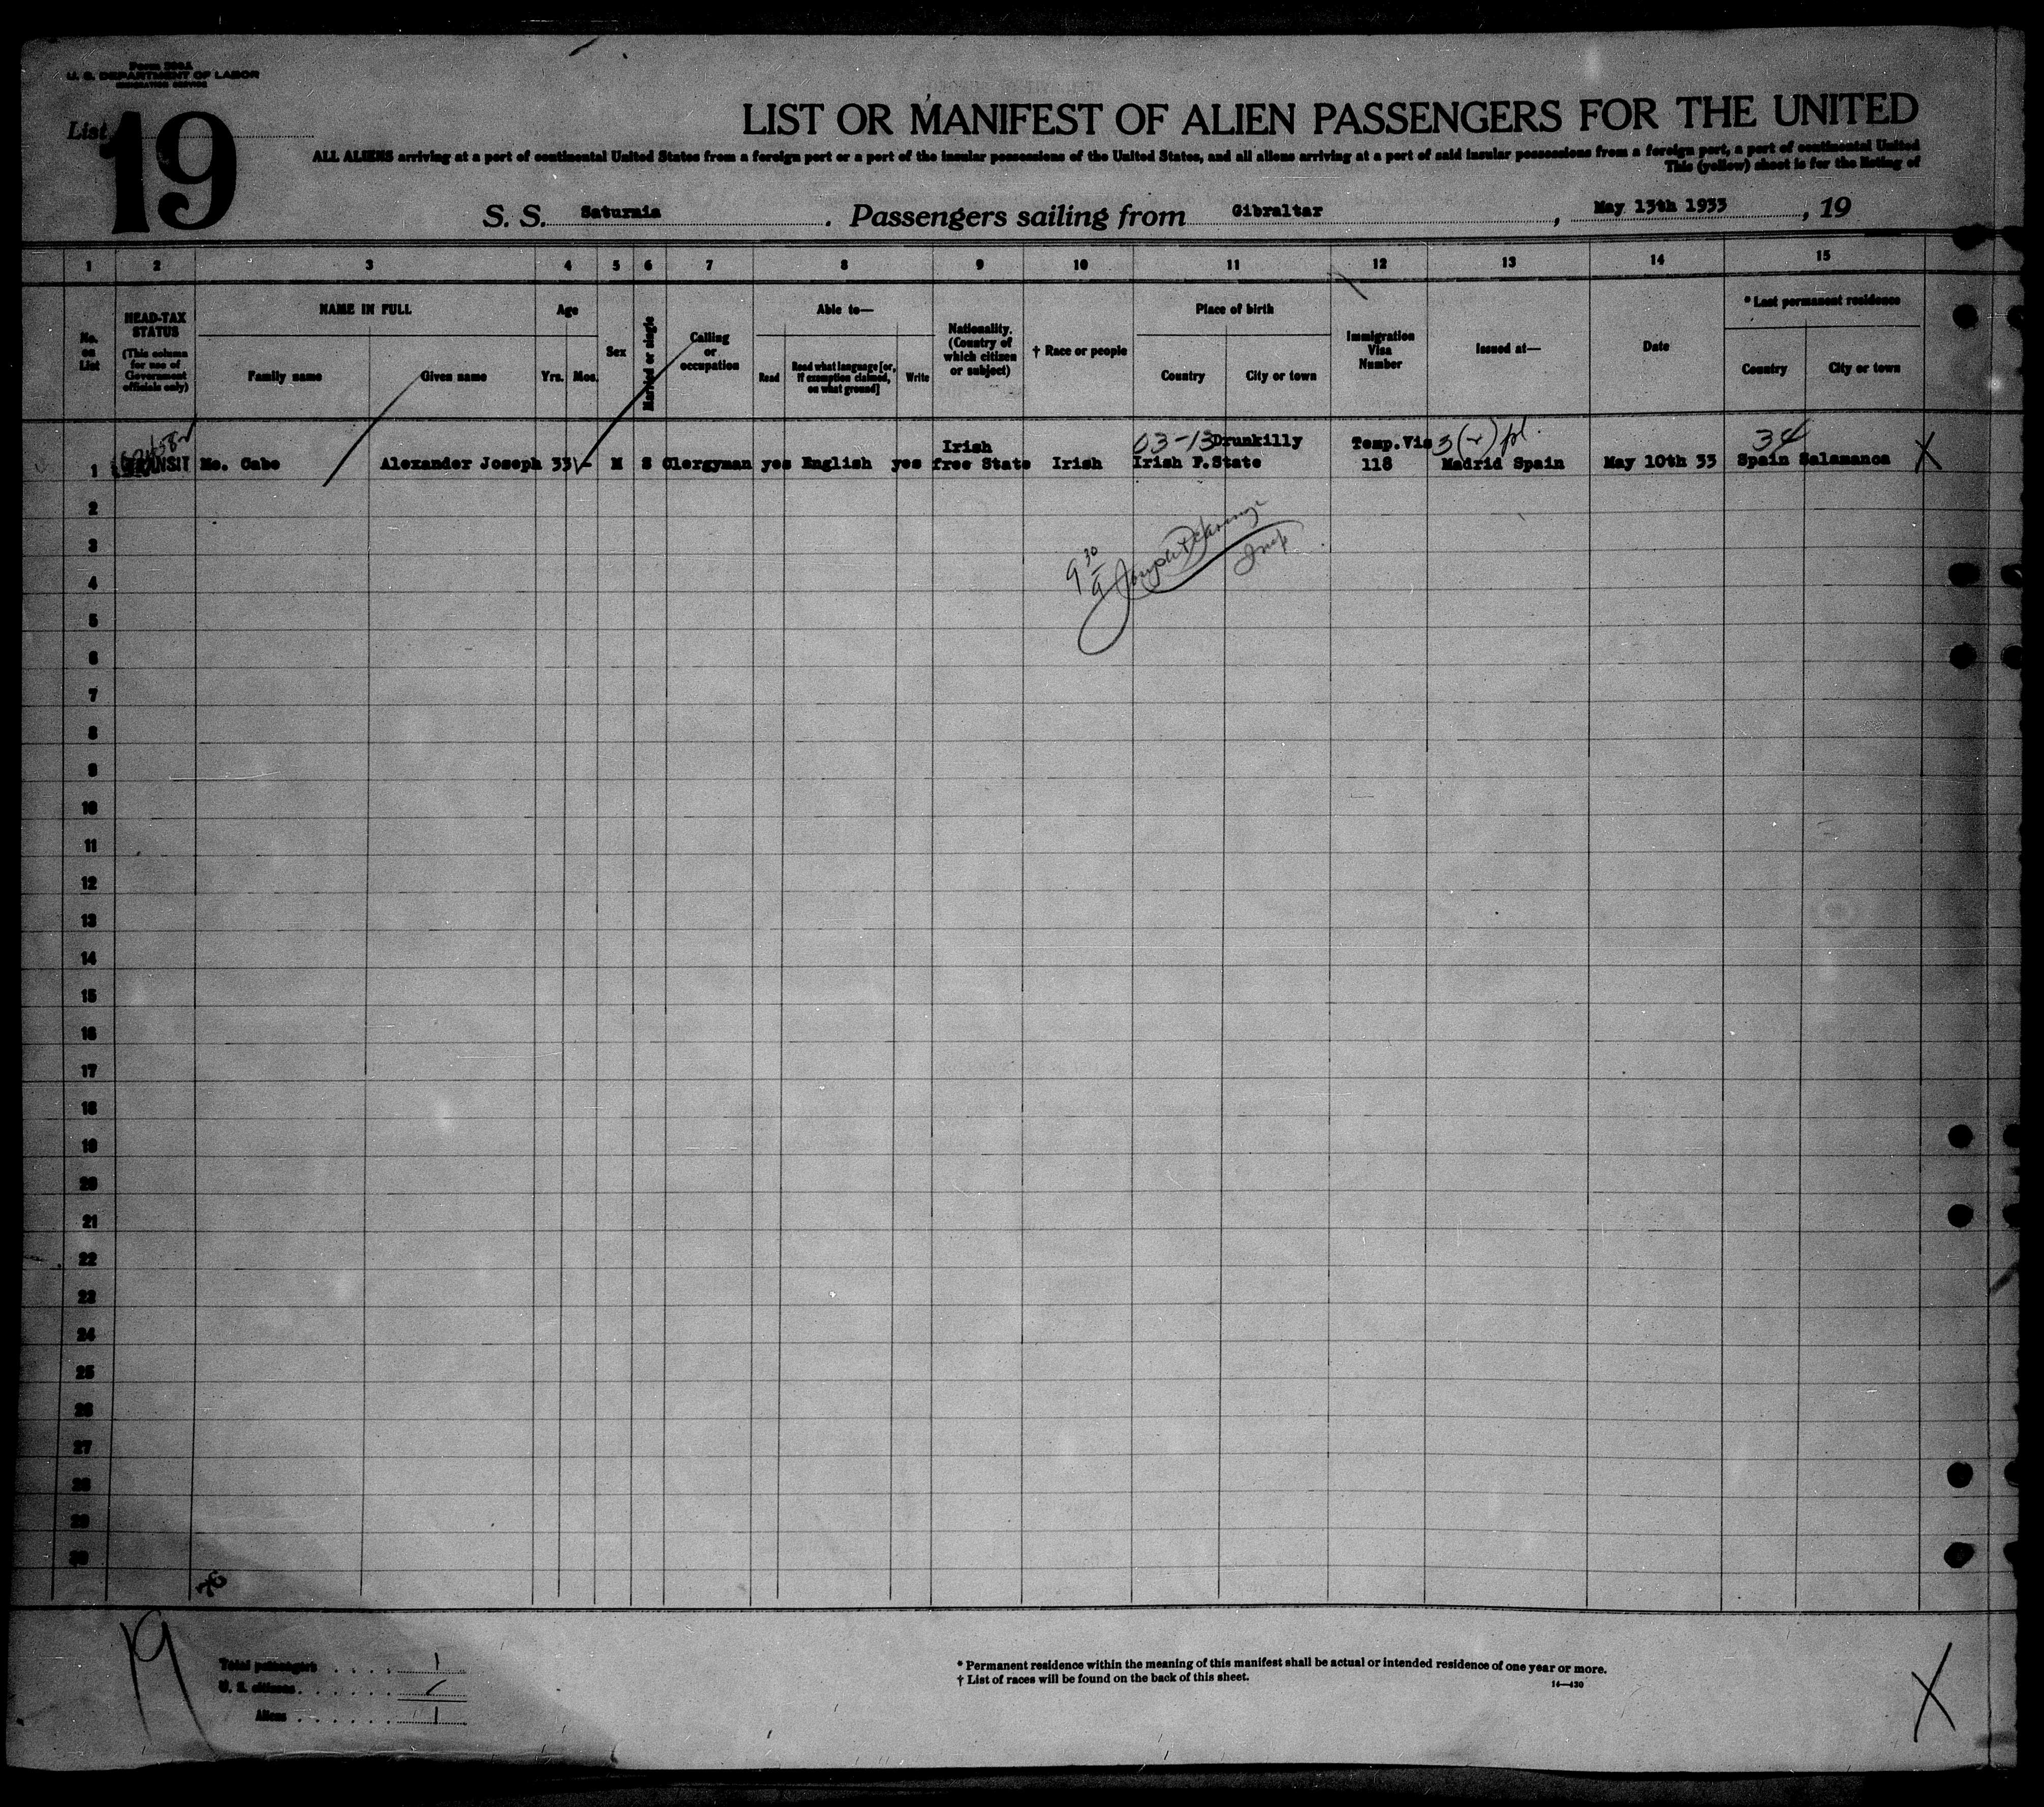 Form 500A
U. S. DEPARTMENT OF LABOR
IMMIGRATION SERVICE
List 19
LIST OR MANIFEST OF ALIEN PASSENGERS FOR THE UNITED
ALL ALIENS arriving at a port of continental United States from a foreign port or a port of the insular possessions of the United States, and all aliens arriving at a port of said insular possessions from a foreign port, a port of continental United
This (yellow) sheet is for the listing of
S. S. Saturnia . Passengers sailing from Gibraltar , May 13th 1933 , 19
1 2 3 4 5 6 7 8 9 10 11 12 13 14 15
No. on List
HEAD-TAX STATUS
(This column for use of Government officials only)
NAME IN FULL
Family name Given name
Age
Yrs. Mos.
Sex
Married or single
Calling or occupation
Able to—
Read Read what language [or, if exemption claimed, on what ground] Write
Nationality. (Country of which citizen or subject)
† Race or people
Place of birth
Country City or town
Immigration Visa Number
Issued at—
Date
* Last permanent residence
Country City or town
Irish 03-13 Drunkilly Temp.Vis 3(-) pl. 34
1 TRANSIT Mc. Cabe Alexander Joseph 33 - M S Clergyman yes English yes free State Irish Irish F.State 118 Madrid Spain May 10th 33 Spain Salamanca X
2
3
9 30
4
5
6
7
8
9
10
11
12
13
14
15
16
17
18
19
20
21
22
23
24
25
26
27
28
29
30
19
Total passengers . . . . 1
U. S. citizens . . . . . .
Aliens . . . . . . 1
* Permanent residence within the meaning of this manifest shall be actual or intended residence of one year or more.
† List of races will be found on the back of this sheet.
14—430
X